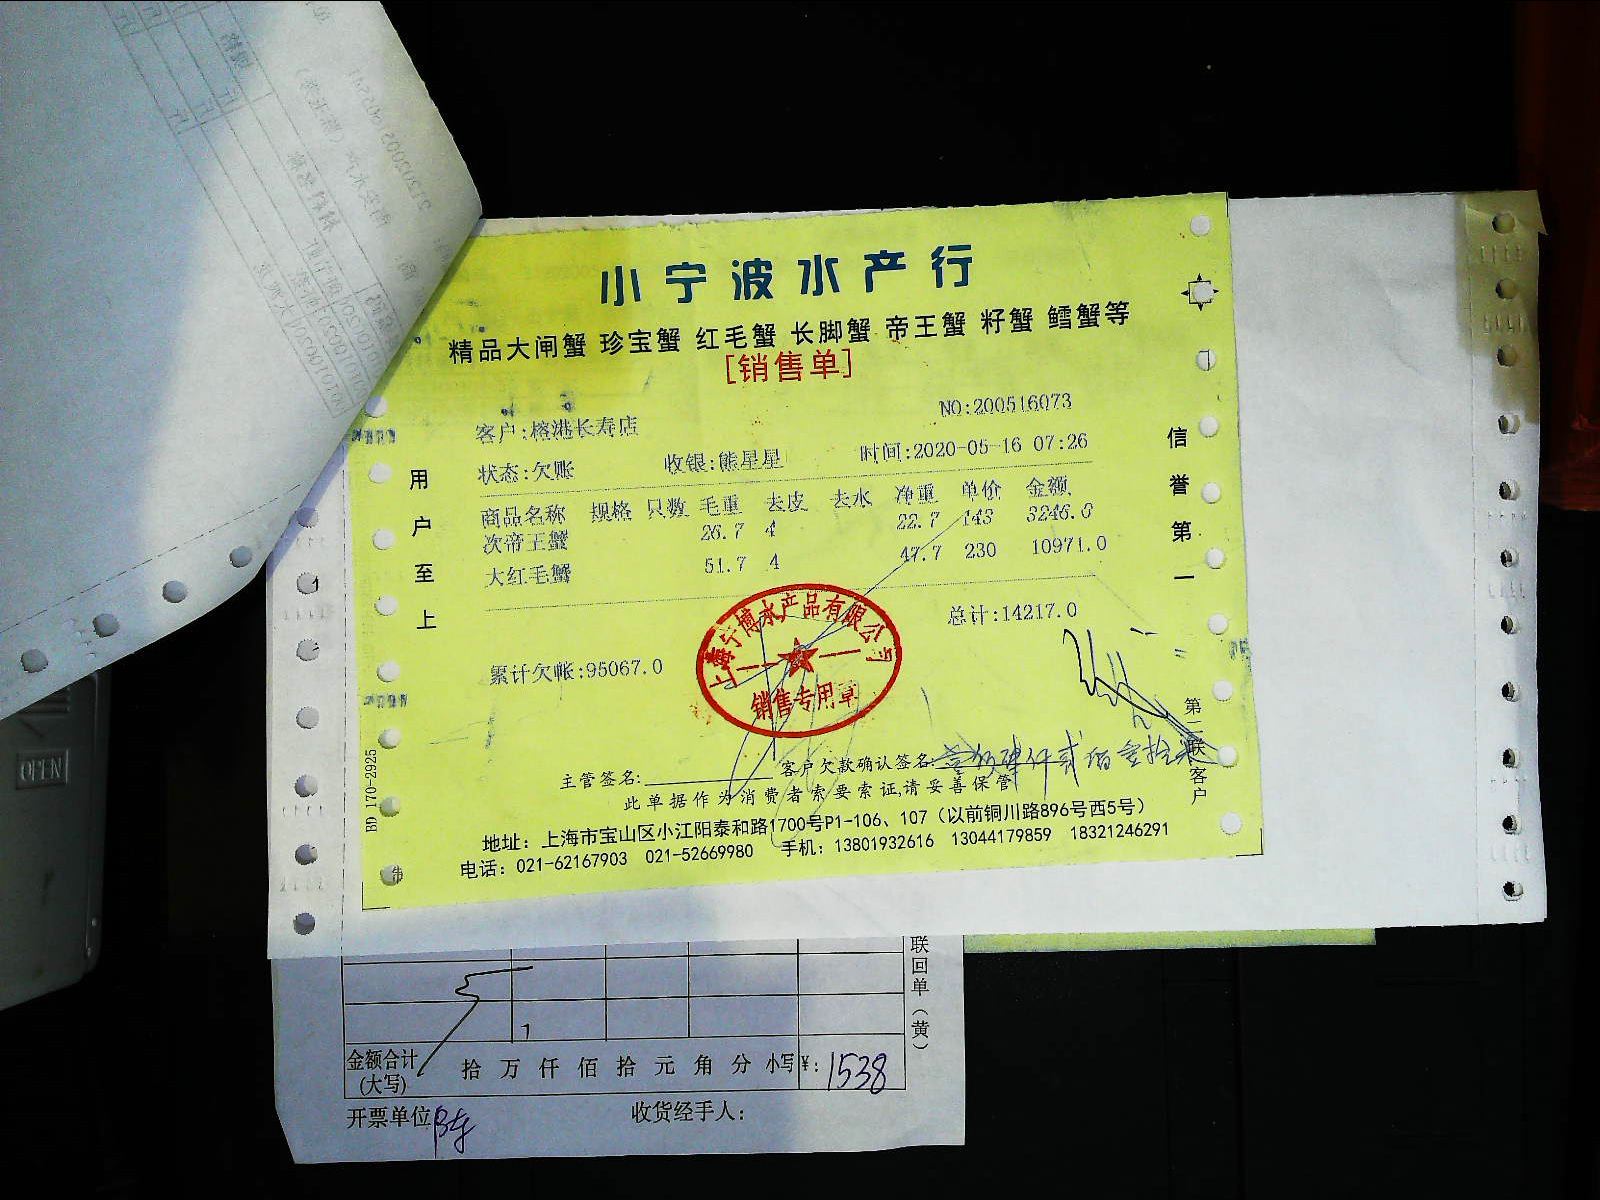 小宁波水产行
精品大闸蟹 珍宝蟹 红毛蟹 长脚蟹 帝王蟹 籽蟹 鳕蟹等
[销售单]
NO:200516073
客户:榕港长寿店
状态:欠账 收银:熊星星 时间:2020-05-16 07:26
商品名称 规格 只数 毛重 去皮 去水 净重 单价 金额
次帝王蟹 26.7 4 22.7 143 3246.0
大红毛蟹 51.7 4 47.7 230 10971.0
总计:14217.0
累计欠帐:95067.0
用户至上
信誉第一
上海宁博水产品有限公司
销售专用章
第二联客户
BD 170-2925
主管签名: 客户欠款确认签名:
此单据作为消费者索要索证,请妥善保管
地址：上海市宝山区小江阳泰和路1700号P1-106、107（以前铜川路896号西5号）
电话：021-62167903 021-52669980 手机：13801932616 13044179859 18321246291
联回单(黄)
金额合计
(大写) 拾 万 仟 佰 拾 元 角 分 小写¥：1538
开票单位 收货经手人：
OPEN